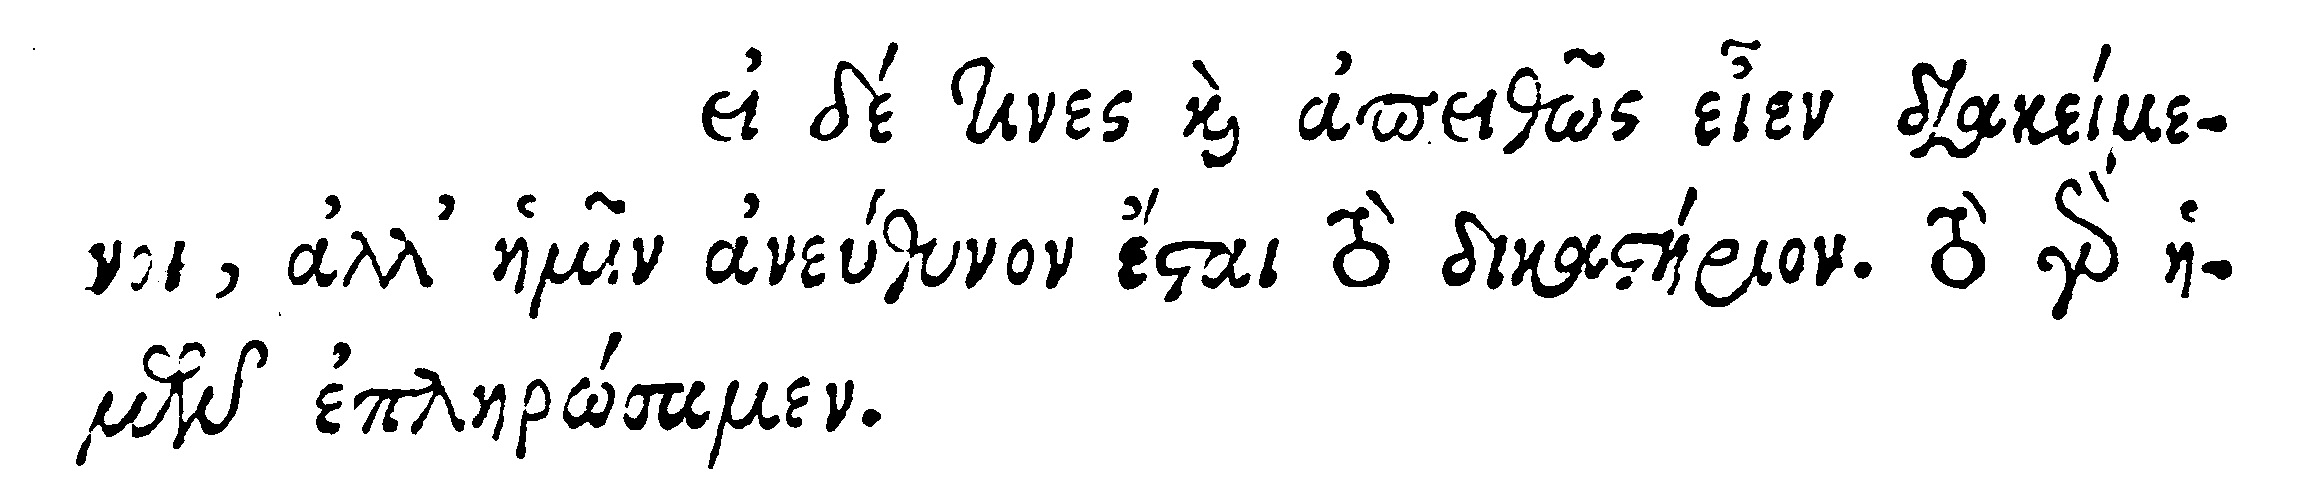 εἰ δέ τινες καὶ ἀπειθῶς εἶεν διακείμε-
νοι, ἀλλ' ἡμῖν ἀνεύθυνον ἔσται τὸ δικαστήριον. τὸ γὰρ ἡ-
μέτερον ἐπληρώσαμεν.